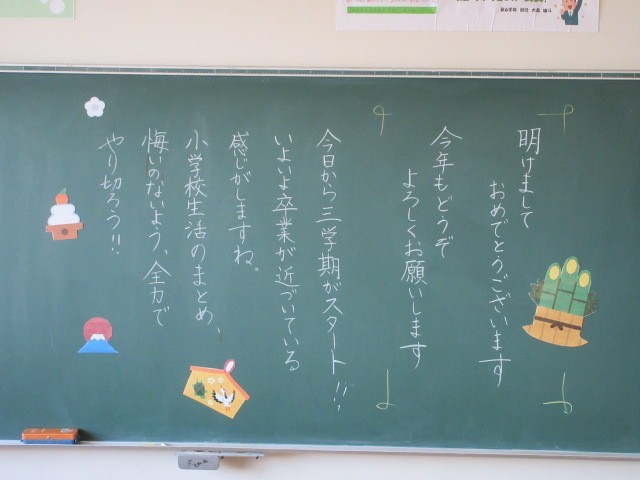 明けまして
おめでとうございます
今年もどうぞ
よろしくお願いします
今日から三学期がスタート!!!
いよいよ卒業が近づいている
感じがしますね。
小学校生活のまとめ、
悔いのないよう、全力で
やり切ろう!!